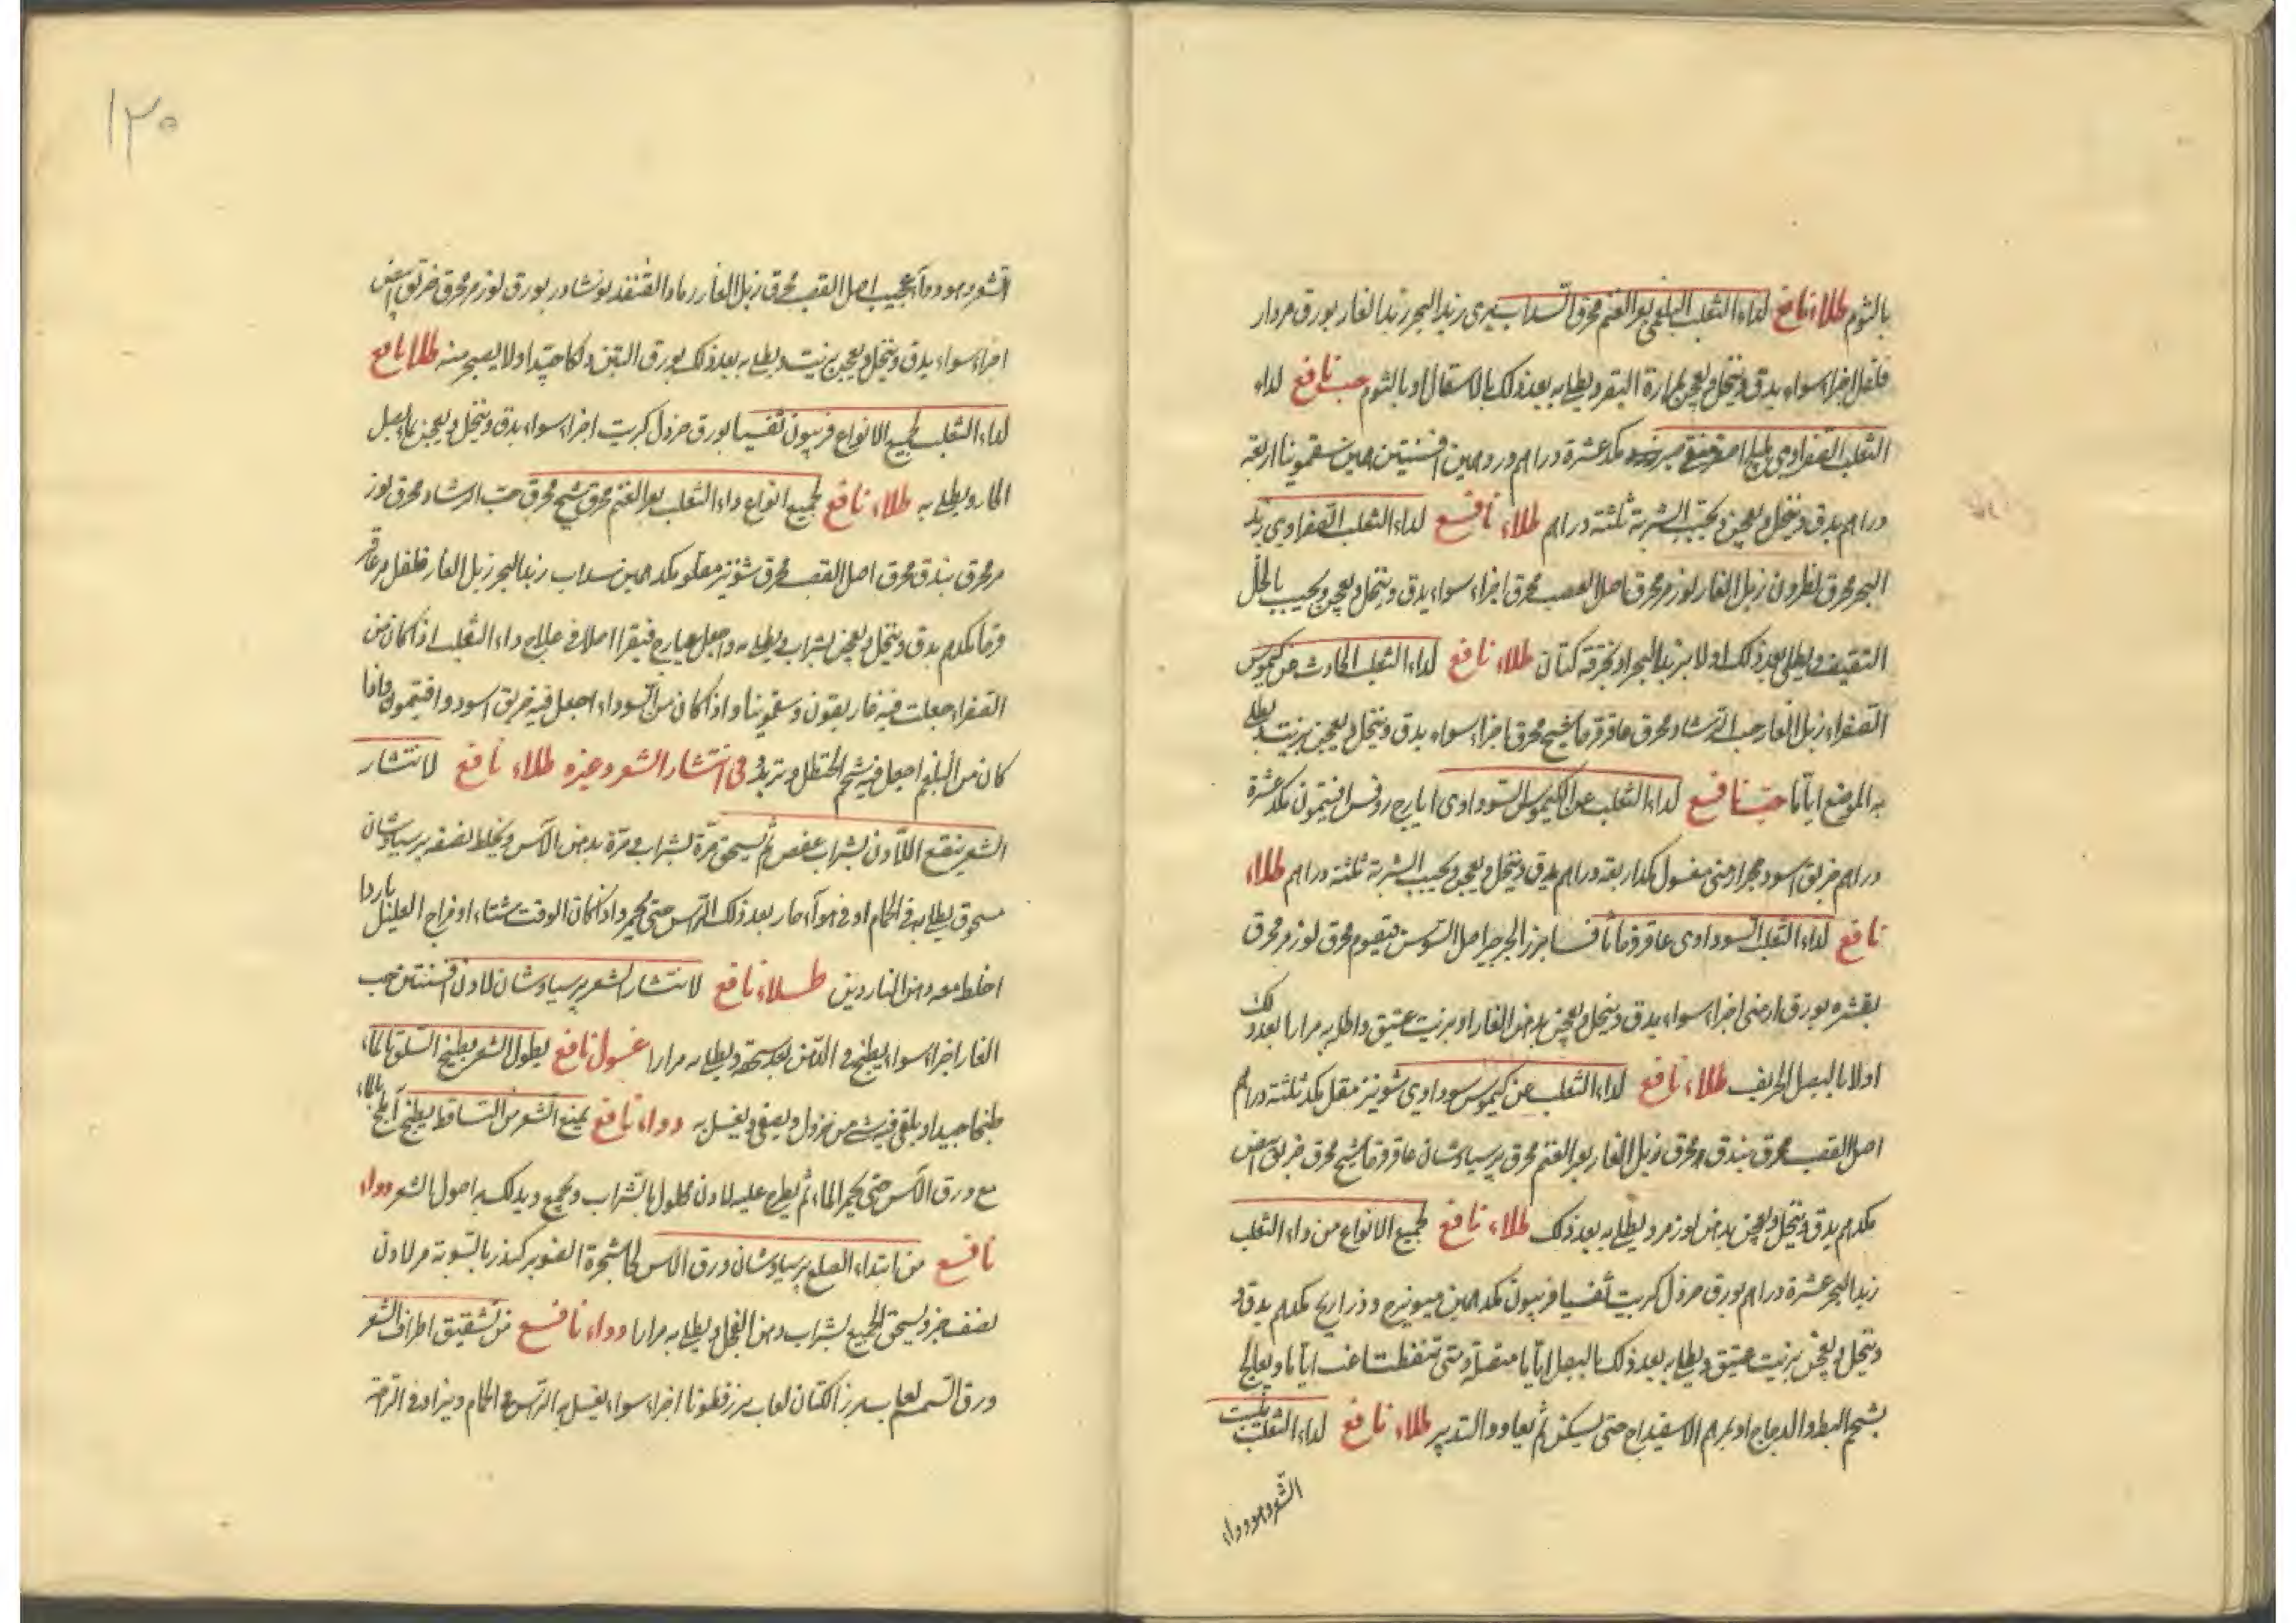 بالثوم طلاء نافع لداء الثعلب البلغمي بعر الغنم محرق السداب بري زبد البحر زبل الفار بورق مردار
فلفل اجزاء سواء يدق وينخل ويعجن بمرارة البقر ويطلى به بعد ذلك بالاسقال او بالثوم حب نافع لداء
الثعلب الصفراوي هليلج اصفر صبر مكد عشرة دراهم ورد درهمين افسنتين درهمين سقمونيا اربعة
دراهم يدق وينخل ويعجن ويحبب الشربة ثلثة دراهم طلاء نافع لداء الثعلب الصفراوي زبد
البحر محرق نطرون زبل الفار لوز مر محرق اصل القصب محرق اجزاء سواء يدق وينخل ويعجن ويحبب بالخل
الثقيف ويطلى بعد ذلك اولا بزبد البحر او بخرقة كتان طلاء نافع لداء الثعلب الحادث من كيموس
الصفراء زبل الفار حب الرشاد محرق عاقرقرحا شيح محرق اجزاء سواء يدق وينخل ويعجن بزيت ويطلى
به الموضع اياما حب نافع لداء الثعلب عن الكيموس السوداوي ايارج روفس افتيمون مكد عشرة
دراهم خربق اسود حجر ارمني مغسول مكد اربعة دراهم يدق وينخل ويعجن ويحبب الشربة ثلثة دراهم طلاء
نافع لداء الثعلب السوداوي عاقرقرحا ثافسيا بزر الجرجير اصل السوس قيقوم محرق لوز مر محرق
بقشره بورق ارمني اجزاء سواء يدق وينخل ويعجن بدهن الغار او بزيت عتيق واطل به مرارا بعد ذلك
اولا بالبصل الحريف طلاء نافع لداء الثعلب عن كيموس سوداوي شونيز مقل مكد ثلثة دراهم
اصل القصب محرق بندق محرق زبل الفار بعر الغنم محرق برسياوشان عاقرقرحا شيح محرق خربق ابيض
مكدرهم يدق وينخل ويعجن بدهن لوز مر ويطلى به بعد ذلك طلاء نافع لجميع الانواع من داء الثعلب
زبد البحر عشرة دراهم بورق خردل كبريت ثفسيا فربيون مكد درهمين ميويزج وذراريح مكدرهم يدق
وينخل ويعجن بزيت عتيق ويطلى به بعد ذلك بالبصل اياما متصلة ومتى تنفطت اغب اياما ويعالج
بشحم البط والدجاج او بمرهم الاسفيداج حتى يسكن ثم يعاود التدبير طلاء نافع لداء الثعلب ينبت
الشعر وهو دواء
١٣٠
الشعر وهو دواء عجيب اصل القصب محرق زبل الفار رماد القنفذ نوشادر بورق لوز مر محرق خربق ابيض
اجزاء سواء يدق وينخل ويعجن بزيت ويطلى به بعد ذلك بورق التين دلكا جيدا اولا يصبر منه طلا نافع
لداء الثعلب لجميع الانواع فربيون ثفسيا بورق خردل كبريت اجزاء سواء يدق وينخل ويعجن بماء بصل
الفار ويطلى به طلاء نافع لجميع انواع داء الثعلب بعر الغنم محرق شيح محرق حب الرشاد محرق لوز
مر محرق بندق محرق اصل القصب محرق شونيز مقلو مكد درهمين سداب زبد البحر زبل الفار فلفل عاقر
قرحا مكدرهم يدق وينخل ويعجن بشراب ويطلى به واجعل عيارج فيقرا اصلا في علاج داء الثعلب اذا كان من
الصفراء جعلت فيه غاريقون وسقمونيا واذا كان من السوداء اجعل فيه خربق اسود وافتيمون واذا
كان من البلغم اجعل فيه شحم الحنظل وتربد في انتشار الشعر وغيره طلاء نافع لانتشار
الشعر ينقع اللاذن بشراب عفص ثم يسحق مرة بشراب ومرة بدهن الآس ويخلط بنصفه برسياوشان
مسحوق يطلى به في الحمام او في هواء حار بعد ذلك الراس حتى يحمر واذا كان الوقت شتاء او مزاج العليل باردا
اخلط معه دهن الناردين طلاء نافع لانتشار الشعر برسياوشان لاذن افسنتين حب
الغار اجزاء سواء يطبخ في الدهن بعد سحقه ويطلى به مرارا غسول نافع يطول الشعر يطبخ السلق بالماء
طبخا جيدا ويلقى فيه شيء من خردل ويصفى ويغسل به دواء نافع يمنع الشعر من التساقط يطبخ املج بالماء
مع ورق الآس حتى يحمر الماء ثم يطرح عليه لاذن محلول بالشراب ويجمع ويدلك به اصول الشعر دواء
نافع من ابتداء الصلع برسياوشان ورق الاس لحا شجرة الصنوبر كندر بالسوية مر لاذن
نصف جزء ويسحق الجميع بشراب ودهن الفجل ويطلى به مرارا دواء نافع من تشقيق اطراف الشعر
ورق السمسم لعاب بزر الكتان لعاب بزر قطونا اجزاء سواء يغسل به الراس في الحمام ويزاد في